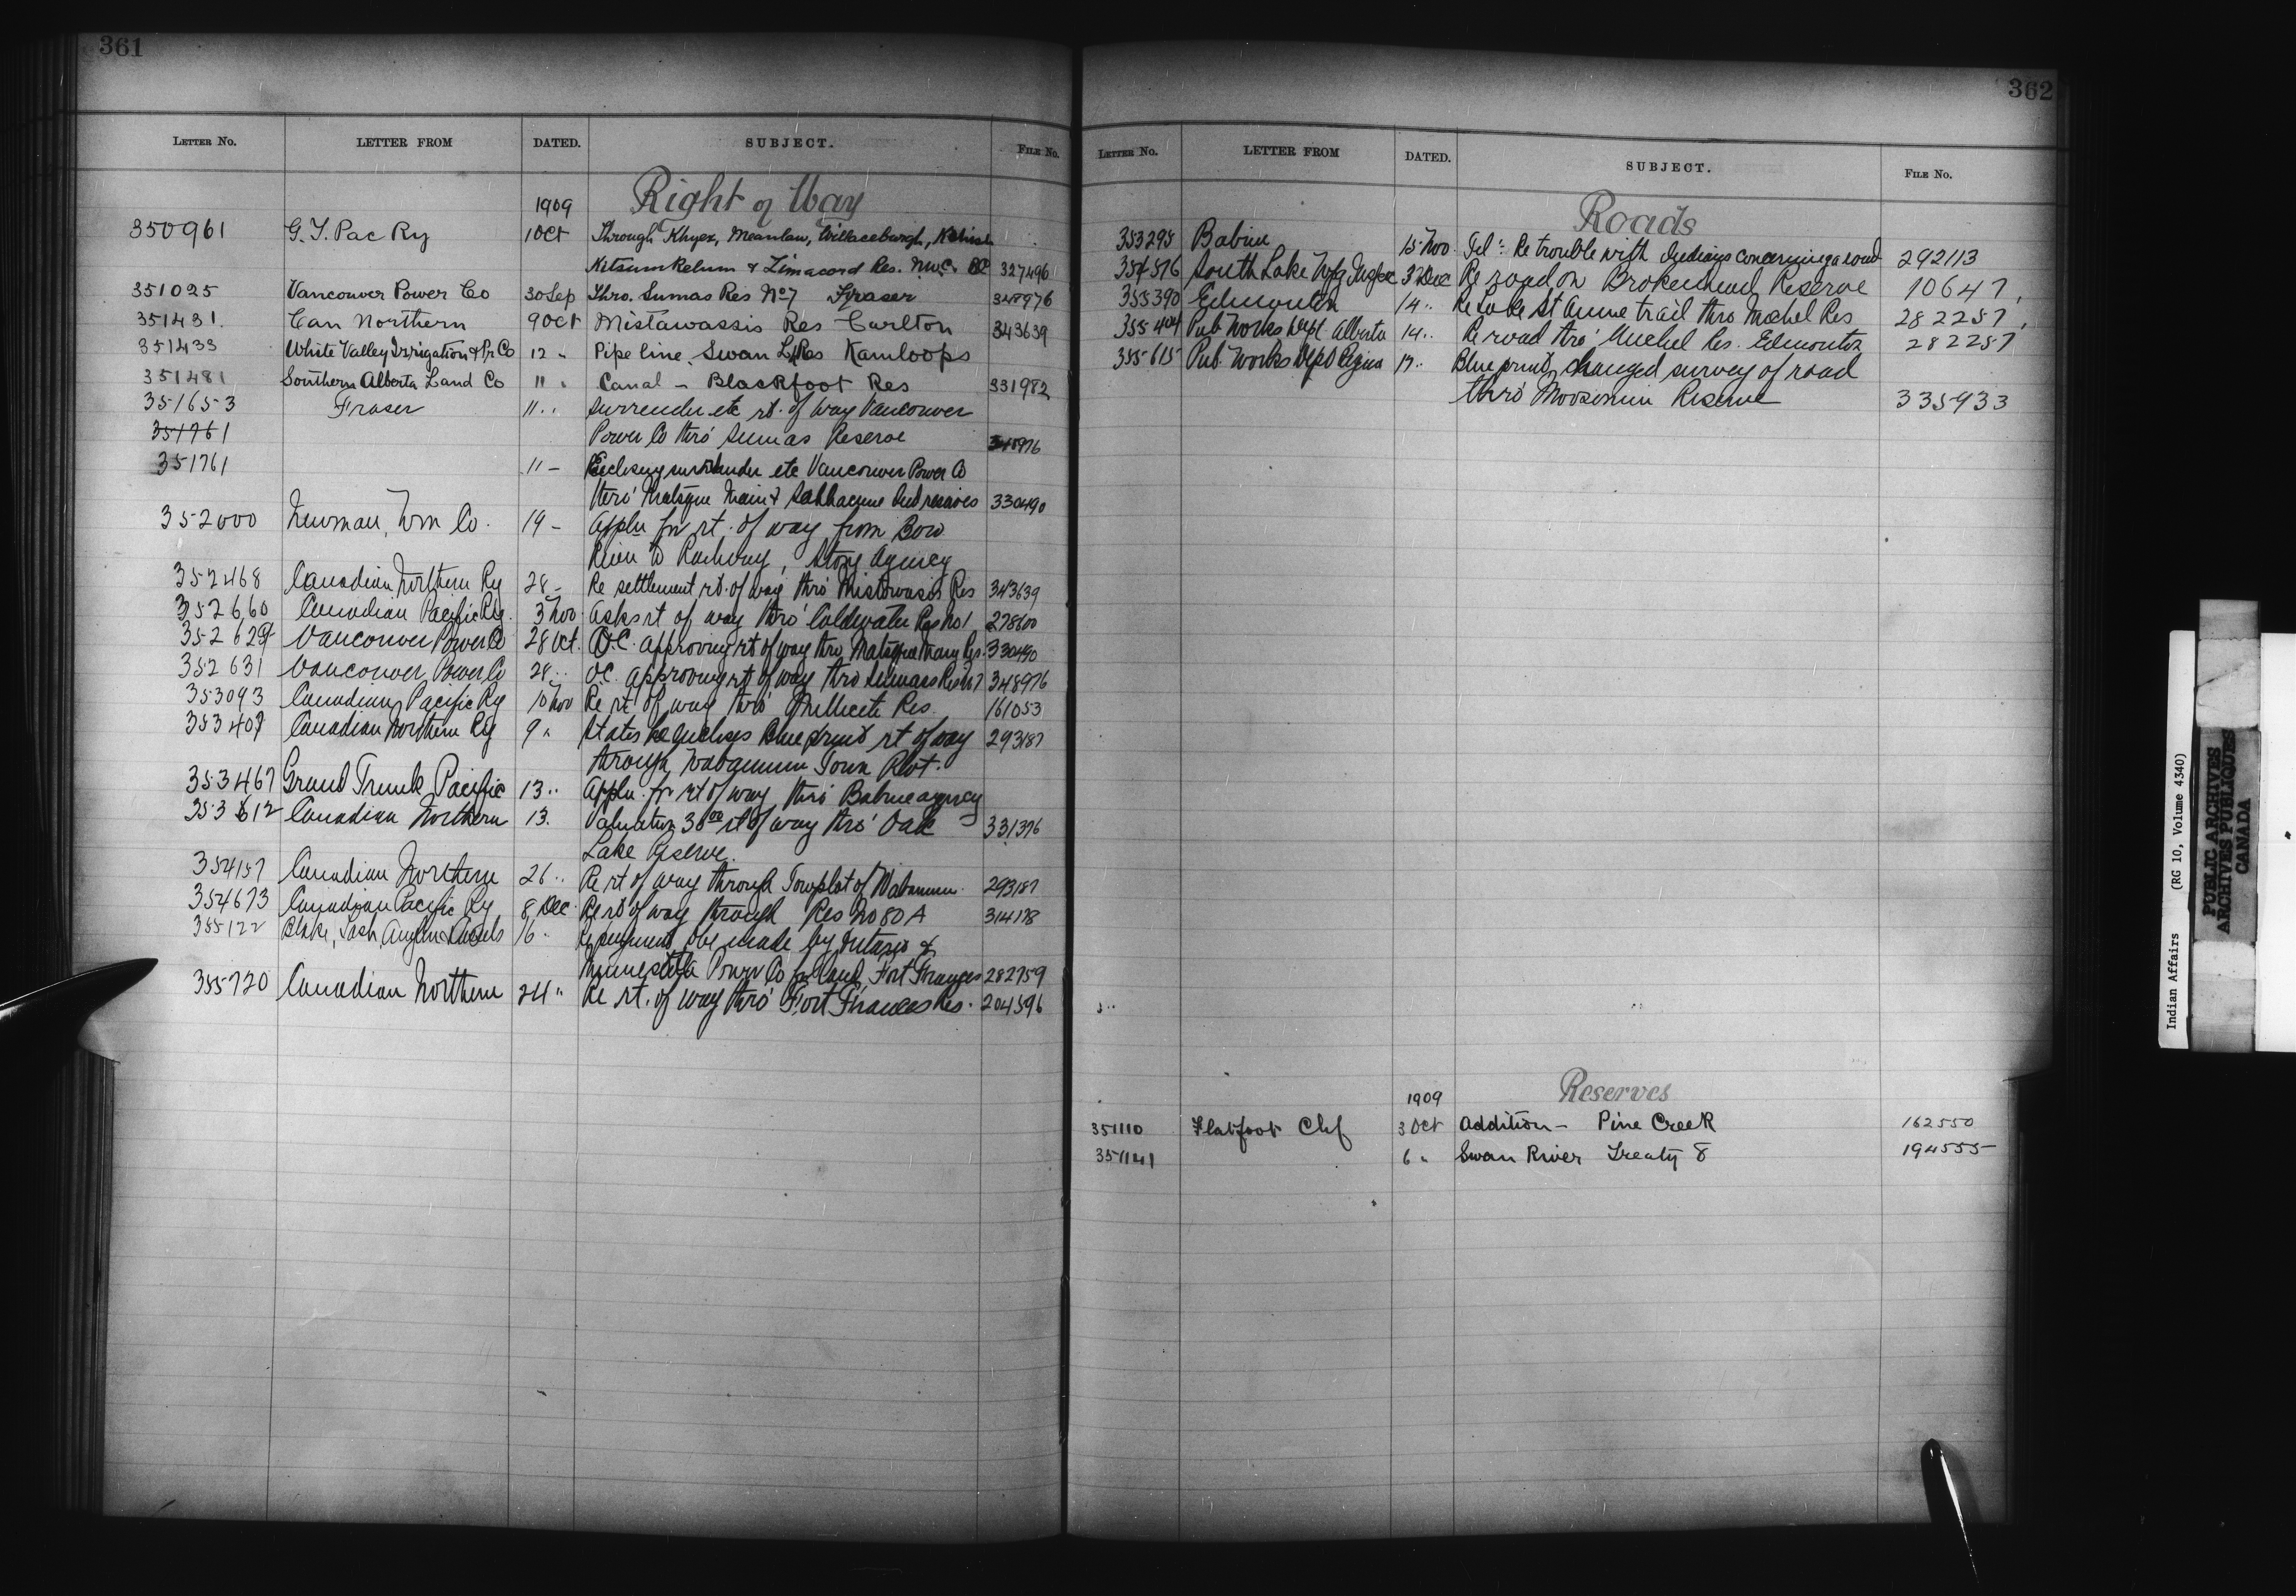 361
LETTER NO. LETTER FROM DATED. SUBJECT. FILE NO.
1909 Right of Way
350961 G. T. Pac Ry 1 Oct Through Khyex, Meanlaw, Willaceburgh,
Kitsumkelum & Zimacord Res. N.W.C. BC 327496
351025 Vancouver Power Co 30 Sep Thro. Sumas Res No 7 Fraser 348976
351431. Can Northern 9 Oct Mistawassis Res Carlton 343639
351433 White Valley Irrigation & Pr Co 12 " Pipe line Swan L Res Kamloops
351481 Southern Alberta Land Co 11 " Canal - Blackfoot Res 331982
351653 Fraser 11 " Surrender etc rt. of way Vancouver
351761 Power Co thro' Sumas Reserve 348976
351761 11 - Enclosing surrender etc Vancouver Power Co
thro' Matsqui Main & Sahhacum Ind reserves 330490
352000 Newman, Wm Co. 19 - Appln for rt. of way from Bow
River to Railway, Stony Agency
352468 Canadian Northern Ry 28 - Re settlement rt. of way thro' Mistowasis Res 343639
352660 Canadian Pacific Ry. 3 Nov Asks rt of way thro' Coldwater Res No 1 278600
352629 Vancouver Power Co 28 Oct. O.C. approving rt of way thro Matsqui Main Res. 330490
352631 Vancouver Power Co 28 " OC. approving rt of way thro Sumass Res No 7 348976
353093 Canadian Pacific Ry 10 Nov Re rt of way thro' Res. 161053
353407 Canadian Northern Ry 9 " States he encloses blue print rt of way 293187
through Wabamum Town Plot.
353467 Grand Trunk Pacific 13 " Appln for rt of way thro' Babine agency
353612 Canadian Northern 13. Valuation 30 00 rt of way thro' Oak 331376
Lake Reserve.
354157 Canadian Northern 26 " Re rt of way through Townplot of Wabamum. 293187
354673 Canadian Pacific Ry 8 Dec Re rt of way through Res No 80 A 314178
355122 Blake, Lash, Anglin & Cassels 16 " Re payment to be made by Ontario &
Minnesota Power Co for land, Fort Frances 282759
355720 Canadian Northern 24 " Re rt. of way thro' Fort Frances Res. 204596
362
LETTER NO. LETTER FROM DATED. SUBJECT. FILE NO.
Roads
353295 Babine 15 Nov. Tel: Re trouble with Indians concerning a road 292113
354576 South Lake Wpg Inspec 3 Dec Re road on Brokenhead Reserve 10647
355390 Edmonton 14 " Re Lake St Anne trail thro Michel Res 282257
355404 Pub Works Dept Alberta 14 " Re road thro' Michel Res. Edmonton 282257
355615 Pub Works Dept Regina 17 " Blue print, changed survey of road
thro' Moosomin Reserve 335933
1909 Reserves
351110 Flatfoot Chf 3 Oct Addition - Pine Creek 162550
351141 6 " Swan River Treaty 8 194555
Indian Affairs (RG 10, Volume 4340)
PUBLIC ARCHIVES
ARCHIVES PUBLIQUES
CANADA